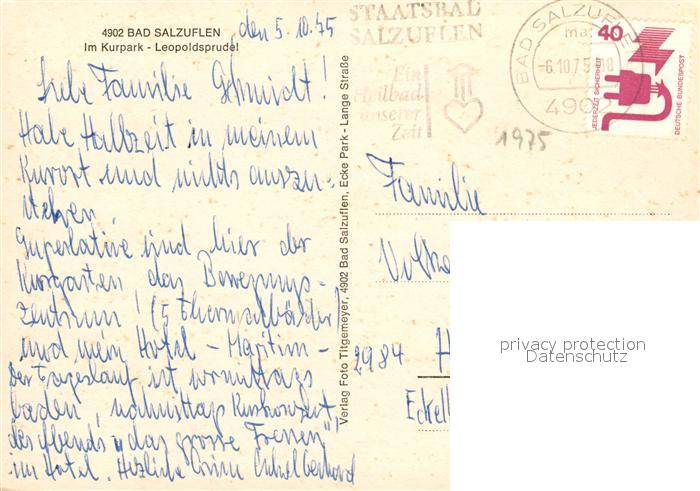 4902 BAD SALZUFLEN
Im Kurpark - Leopoldsprudel
den 5.10.75
Liebe Familie Schmidt!
Habe Halbzeit in meinem
Kurort und nichts auszu-
stehen.
Superlative sind hier der
Kurgarten das Bewegungs-
zentrum! (5 Thermalbäder)
und mein Hotel - Maritim -
Der Tageslauf ist vormittags
baden, nachmittag Kurkonzert,
des Abends "das grosse Fressen"
im Hotel. Herzliche Grüsse
Verlag Foto Titgemeyer, 4902 Bad Salzuflen, Ecke Park - Lange Straße
STAATSBAD
SALZUFLEN
Ein
Heilbad
unserer
Zeit
BAD SALZUFLEN
-6.10.75-18
4902
40
JEDERZEIT SICHERHEIT
DEUTSCHE BUNDESPOST
1975
Familie
Volk
2984 H
Eckel
privacy protection
Datenschutz